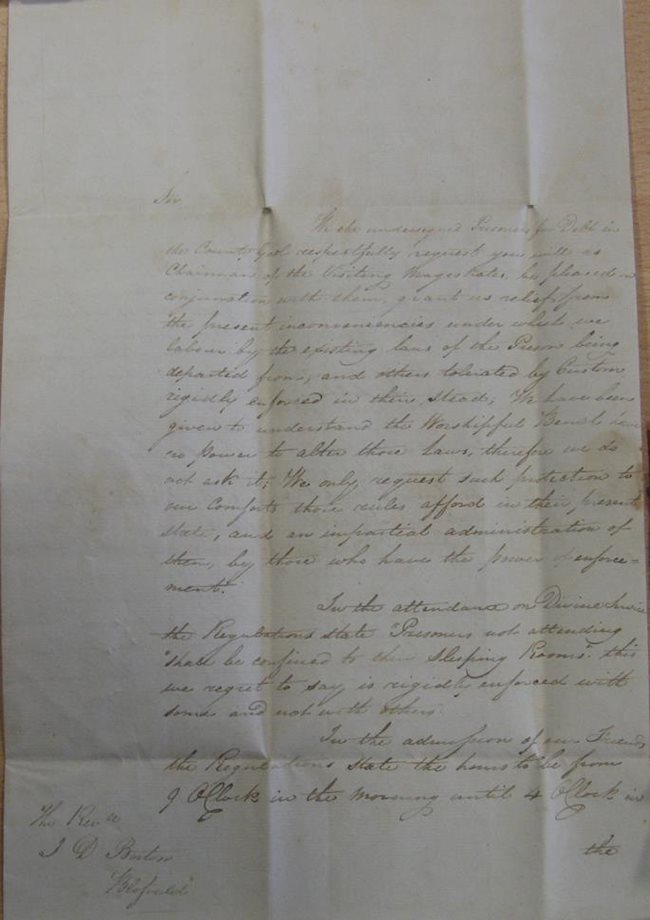 Sir
We the undersigned Prisoners for Debt in
the County Gaol respectfully request you will as
Chairman of the Visiting Magistrates, be pleased in
conjunction with them, grant us relief from
the present inconveniencies under which we
labour by the existing laws of the Prison being
departed from, and others tolerated by Custom
rigidly enforced in their stead; We have been
given to understand the Worshipful Bench have
no power to alter those laws, therefore we do
not ask it; We only request such protection to
our Comforts those rules afford in their present
state, and an impartial administration of
them, by those who have the power of enforce=
ment.
In the attendance on Divine Service
the Regulations state "Prisoners not attending
"shall be confined to their Sleeping Rooms". this
we regret to say is rigidly enforced with
some and not with others.
In the admission of our Friends
the Regulations state the hours to be from
9 OClock in the Morning until 4 OClock in
the
The Revd
J D Borton
Blofield